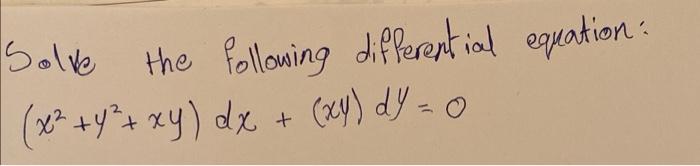 Solve the following differential equation:
(x² + y² + xy) dx + (xy) dy = 0